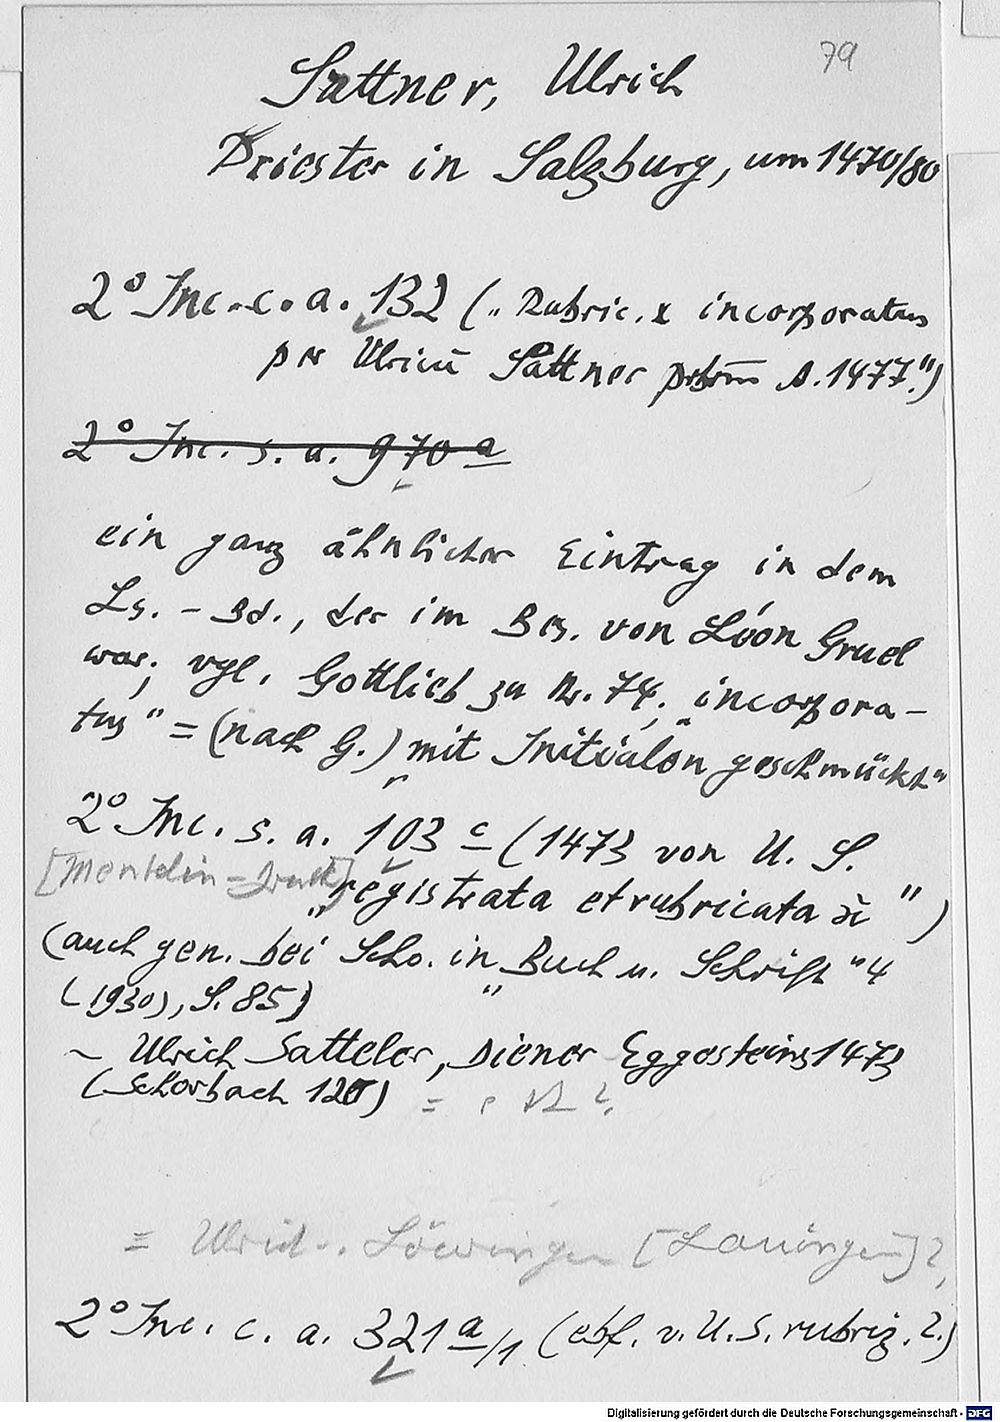 79
Sattner, Ulrich
Priester in Salzburg, um 1470/80
2° Inc. c. a. 132 („Rubric. x incorporatus
per Ulricū Sattner prbrm A. 1477.")
2° Inc. s. a. 970 a
ein ganz ähnlicher Eintrag in dem
Ls. - Bd., der im Bes. von Léon Gruel
war; vgl. Gottlieb zu Nr. 74; „incorpora-
tus" = (nach G.) „mit Initialen geschmückt"
2° Inc. s. a. 103 c (1473 von U. S.
[Mentelin-Druck] „registrata et rubricata" )
(auch gen. bei Scho. in „Buch u. Schrift" 4
(1930), S. 85)
~ Ulrich Satteler, Diener Eggesteins 1473
(Schorbach 120) = ?
= Ulrich Löwingen [Lauingen]?,
2° Inc. c. a. 321 a/1 (ebf. v. U. S. rubriz.?)
Digitalisierung gefördert durch die Deutsche Forschungsgemeinschaft - DFG